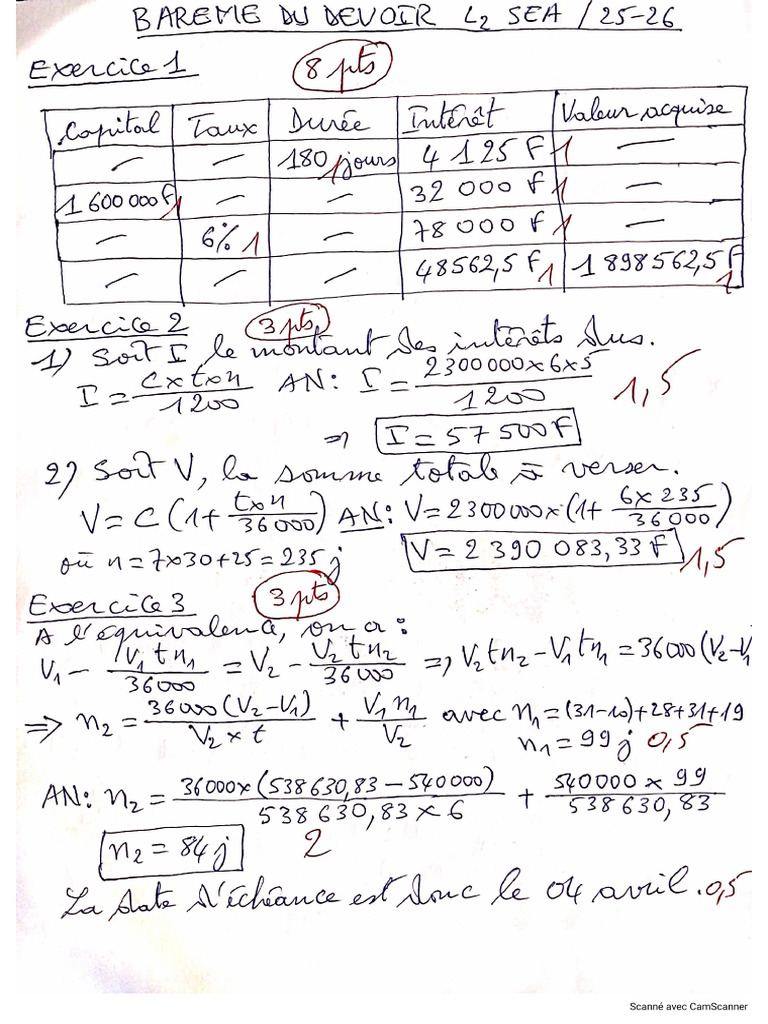 BAREME DU DEVOIR L2 SEA / 25-26
Exercice 1 8 pts
Capital Taux Durée Intérêt Valeur acquise
— — 180 jours 1 4 125 F 1 —
1 600 000 F 1 — — 32 000 F 1 —
— 6% 1 — 78 000 F 1 —
— — — 48562,5 F 1 1 898 562,5 F 1
Exercice 2 3 pts
1) Soit I le montant des intérêts dus.
I = C x t x n / 1200 AN: I = 2300000 x 6 x 5 / 1200 1,5
⇒ I = 57 500 F
2) Soit V, la somme totale à verser.
V = C (1 + t x n / 36000) AN: V = 2300000 x (1 + 6 x 235 / 36000)
où n = 7x30+25 = 235 j V = 2 390 083,33 F 1,5
Exercice 3 3 pts
A l'équivalence, on a :
V1 - V1 t n1 / 36000 = V2 - V2 t n2 / 36000 ⇒ V2 t n2 - V1 t n1 = 36000 (V2-V1
⇒ n2 = 36000 (V2-V1) / V2 x t + V1 n1 / V2 avec n1 = (31-10)+28+31+19
n1 = 99 j 0,5
AN: n2 = 36000 x (538 630,83 - 540000) / 538 630,83 x 6 + 540000 x 99 / 538 630,83
n2 = 84 j 2
La date d'échéance est donc le 04 avril. 0,5
Scanné avec CamScanner